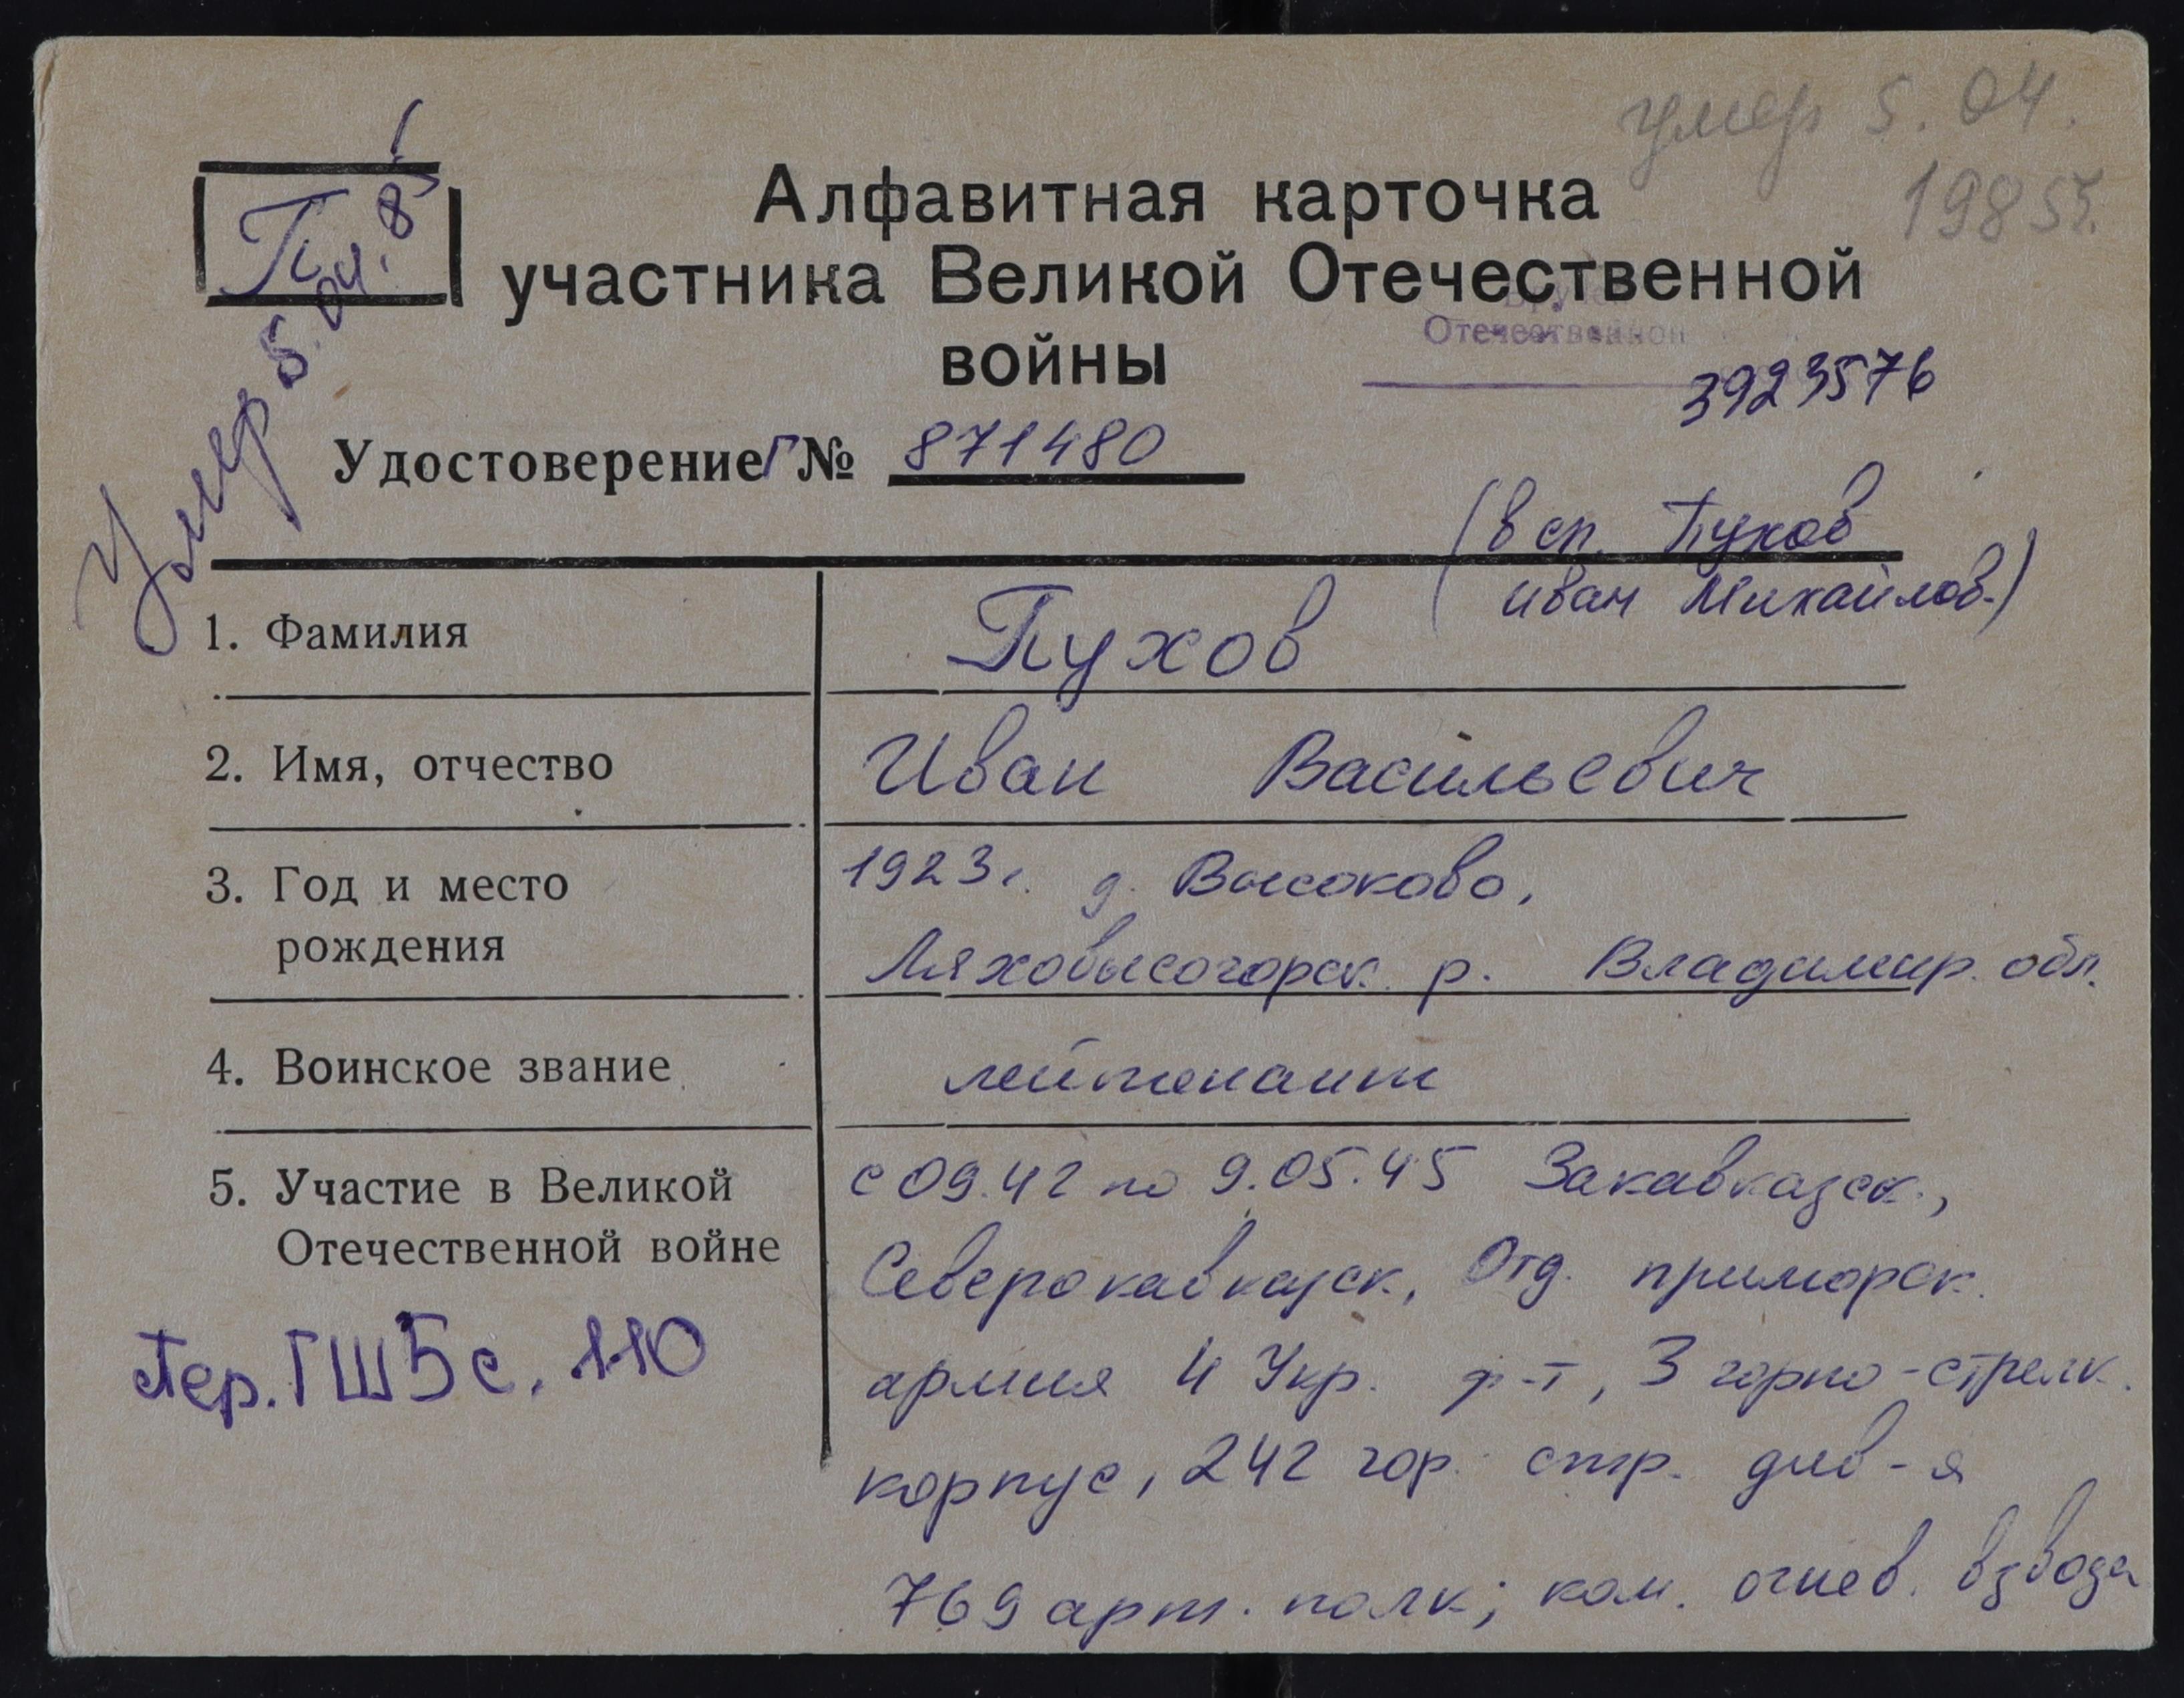 умер 5.04.
1985г.
П
Умер 5.04.85
Алфавитная карточка
участника Великой Отечественной
войны
Отечественной
3923576
Удостоверение Г № 871480
(в сп. Пухов
иван Михайлов.)
1. Фамилия Пухов
2. Имя, отчество Иван Васильевич
3. Год и место 1923г. д. Высоково,
рождения Ляховысогорск. р. Владимир. обл.
4. Воинское звание лейтенант
5. Участие в Великой с 09.42 по 9.05.45 Закавказск.,
Отечественной войне Северокавказск, Отд. приморск.
Пер. ГШБ с. 110 армия 4 Укр. ф-т, 3 горно-стрелк.
корпус, 242 гор. стр. див-я
769 арт. полк; ком. огнев. взвода